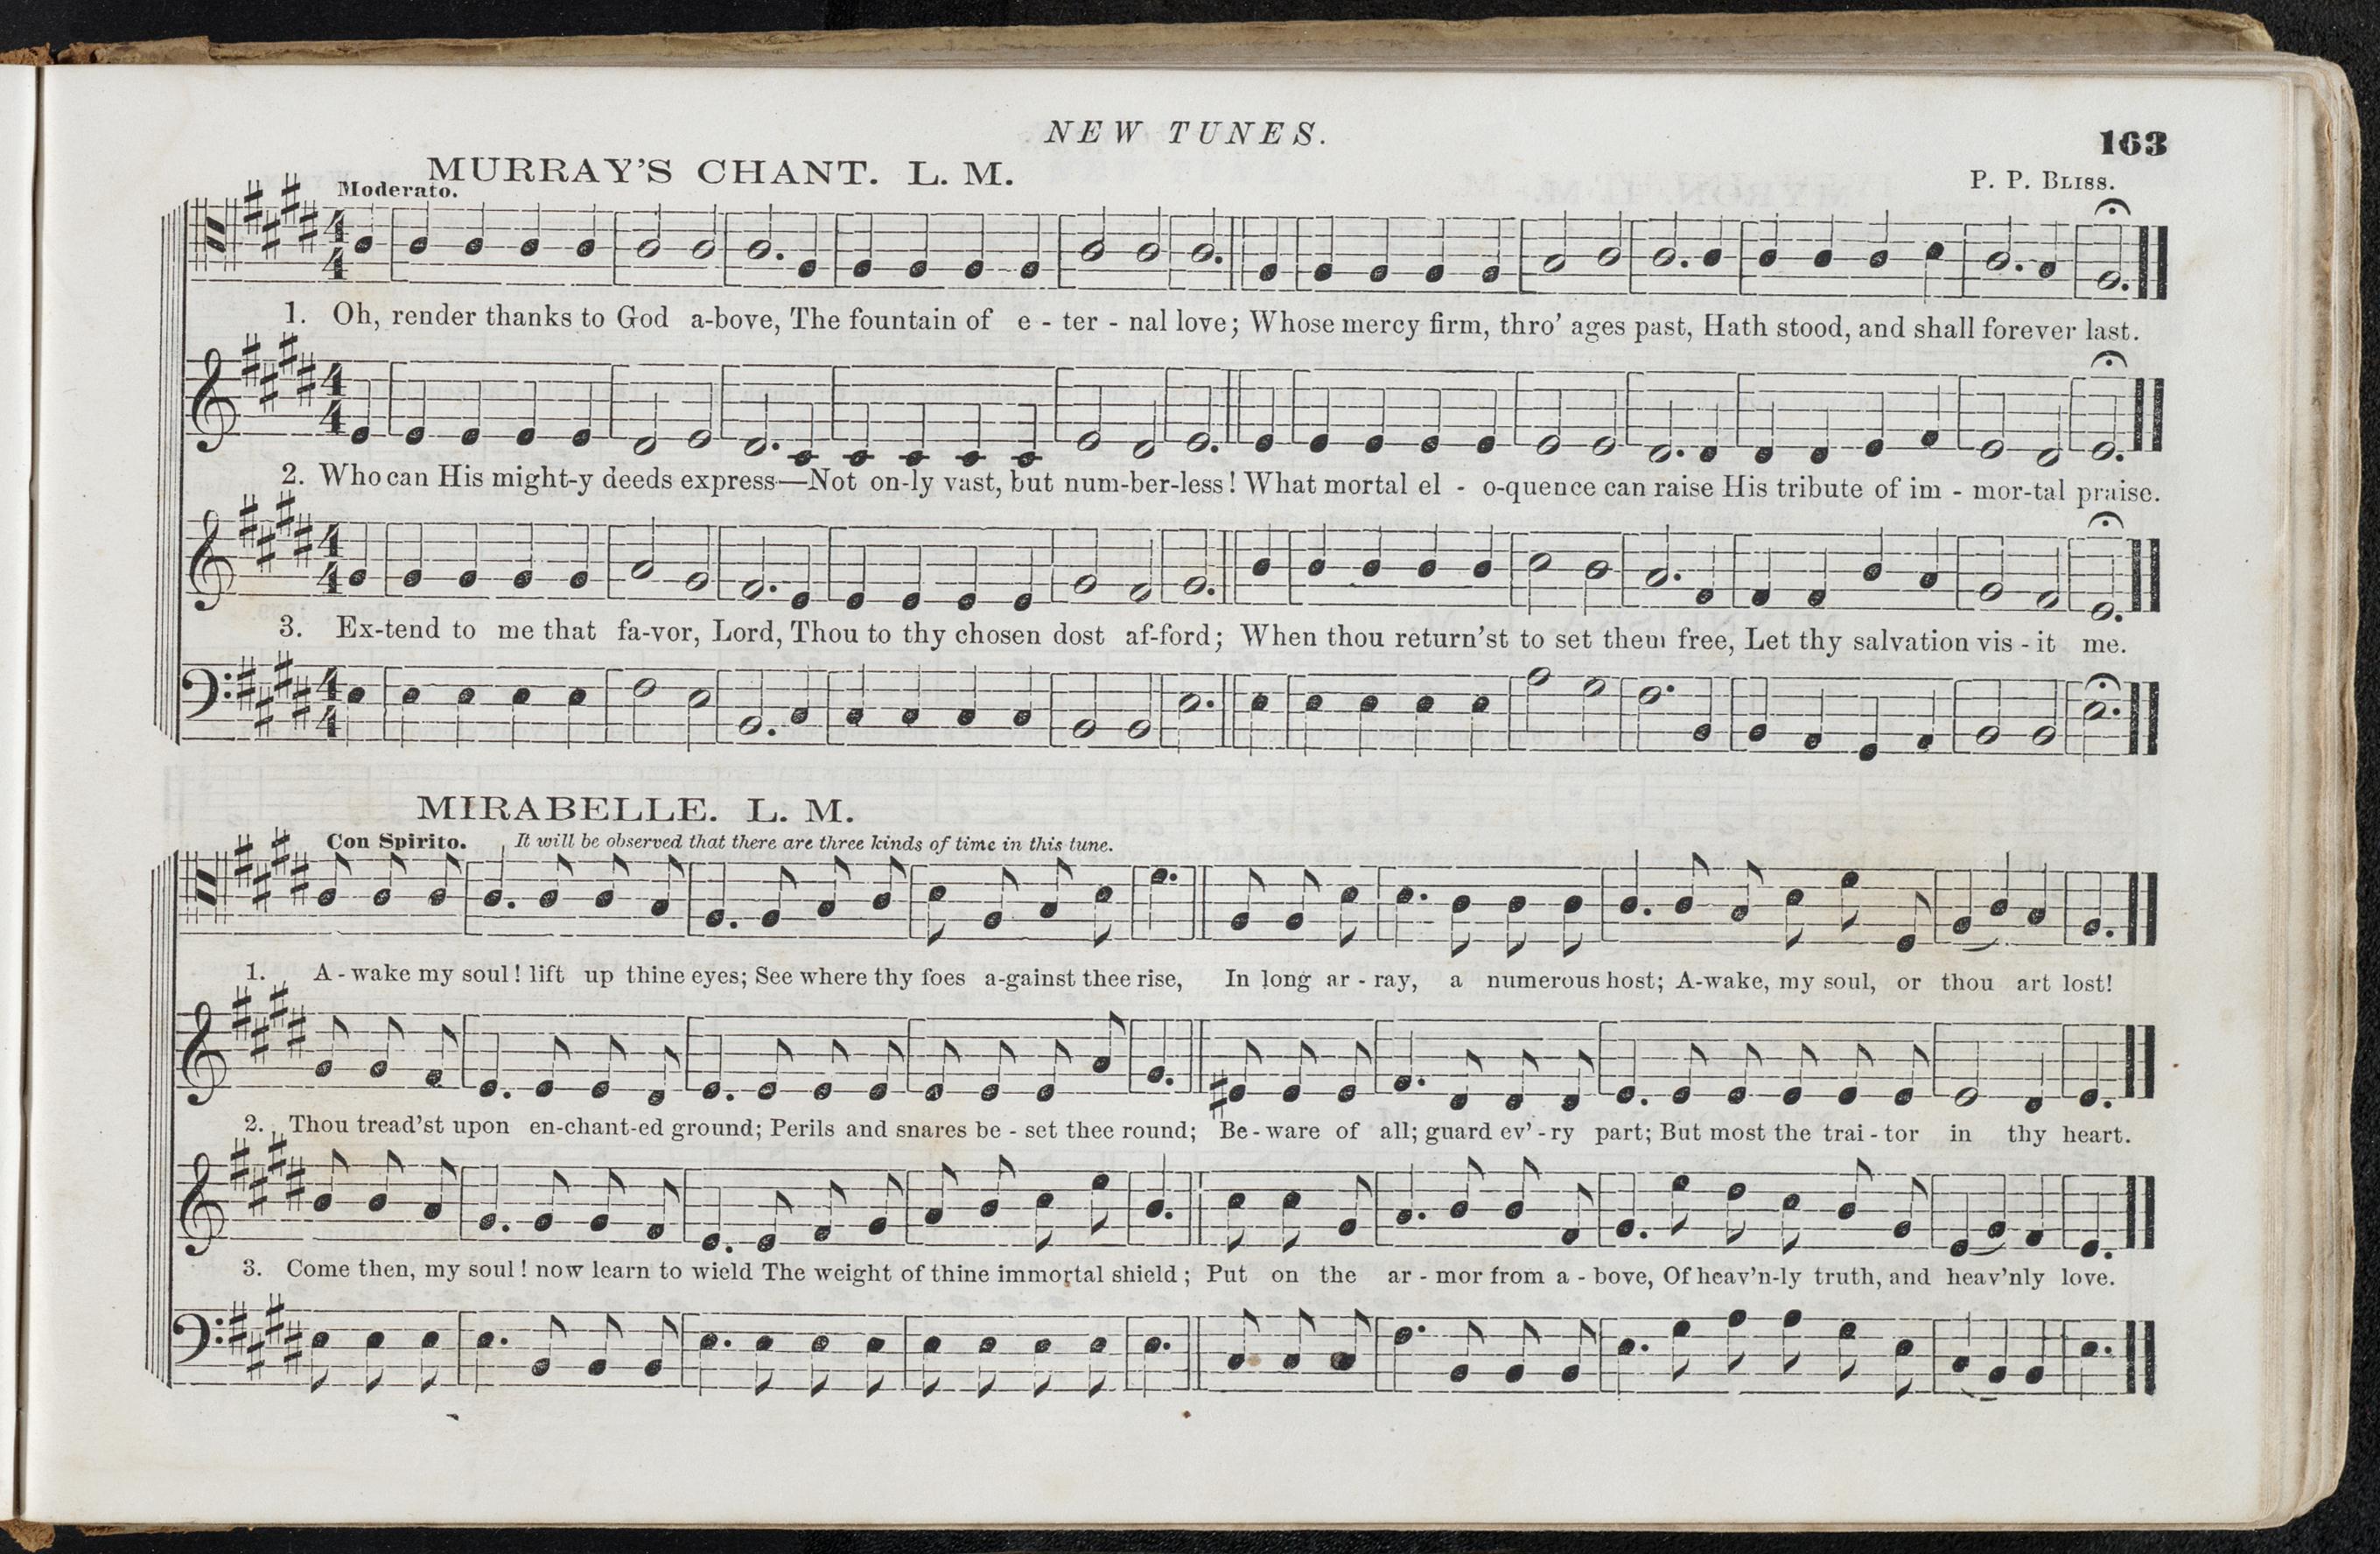 NEW TUNES.
163
MURRAY'S CHANT. L. M.
Moderato.
P. P. BLISS.
4 4
1. Oh, render thanks to God a-bove, The fountain of e - ter - nal love; Whose mercy firm, thro' ages past, Hath stood, and shall forever last.
4 4
2. Who can His might-y deeds express—Not on-ly vast, but num-ber-less! What mortal el - o-quence can raise His tribute of im - mor-tal praise.
4 4
3. Ex-tend to me that fa-vor, Lord, Thou to thy chosen dost af-ford; When thou return'st to set them free, Let thy salvation vis - it me.
4 4
MIRABELLE. L. M.
Con Spirito. It will be observed that there are three kinds of time in this tune.
1. A - wake my soul! lift up thine eyes; See where thy foes a-gainst thee rise, In long ar - ray, a numerous host; A-wake, my soul, or thou art lost!
2. Thou tread'st upon en-chant-ed ground; Perils and snares be - set thee round; Be - ware of all; guard ev' - ry part; But most the trai - tor in thy heart.
3. Come then, my soul! now learn to wield The weight of thine immortal shield; Put on the ar - mor from a - bove, Of heav'n-ly truth, and heav'nly love.